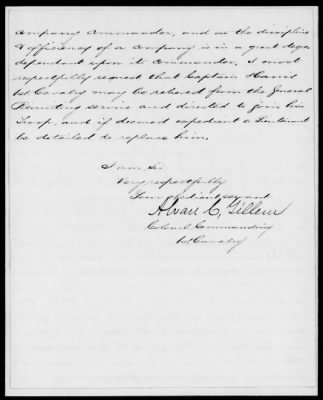 Company Commander, and as the discipline
& efficiency of a Company is in a great degree
dependant upon its Commander, I most
respectfully request that Captain Harris
1st Cavalry may be relieved from the General
Recruiting service and directed to join his
Troop, and if deemed expedient a Lieutenant
be detailed to replace him.
I am Sir
Very respectfully
Your obedient servant
Alvan C. Gillem
Colonel Commanding
1st Cavalry